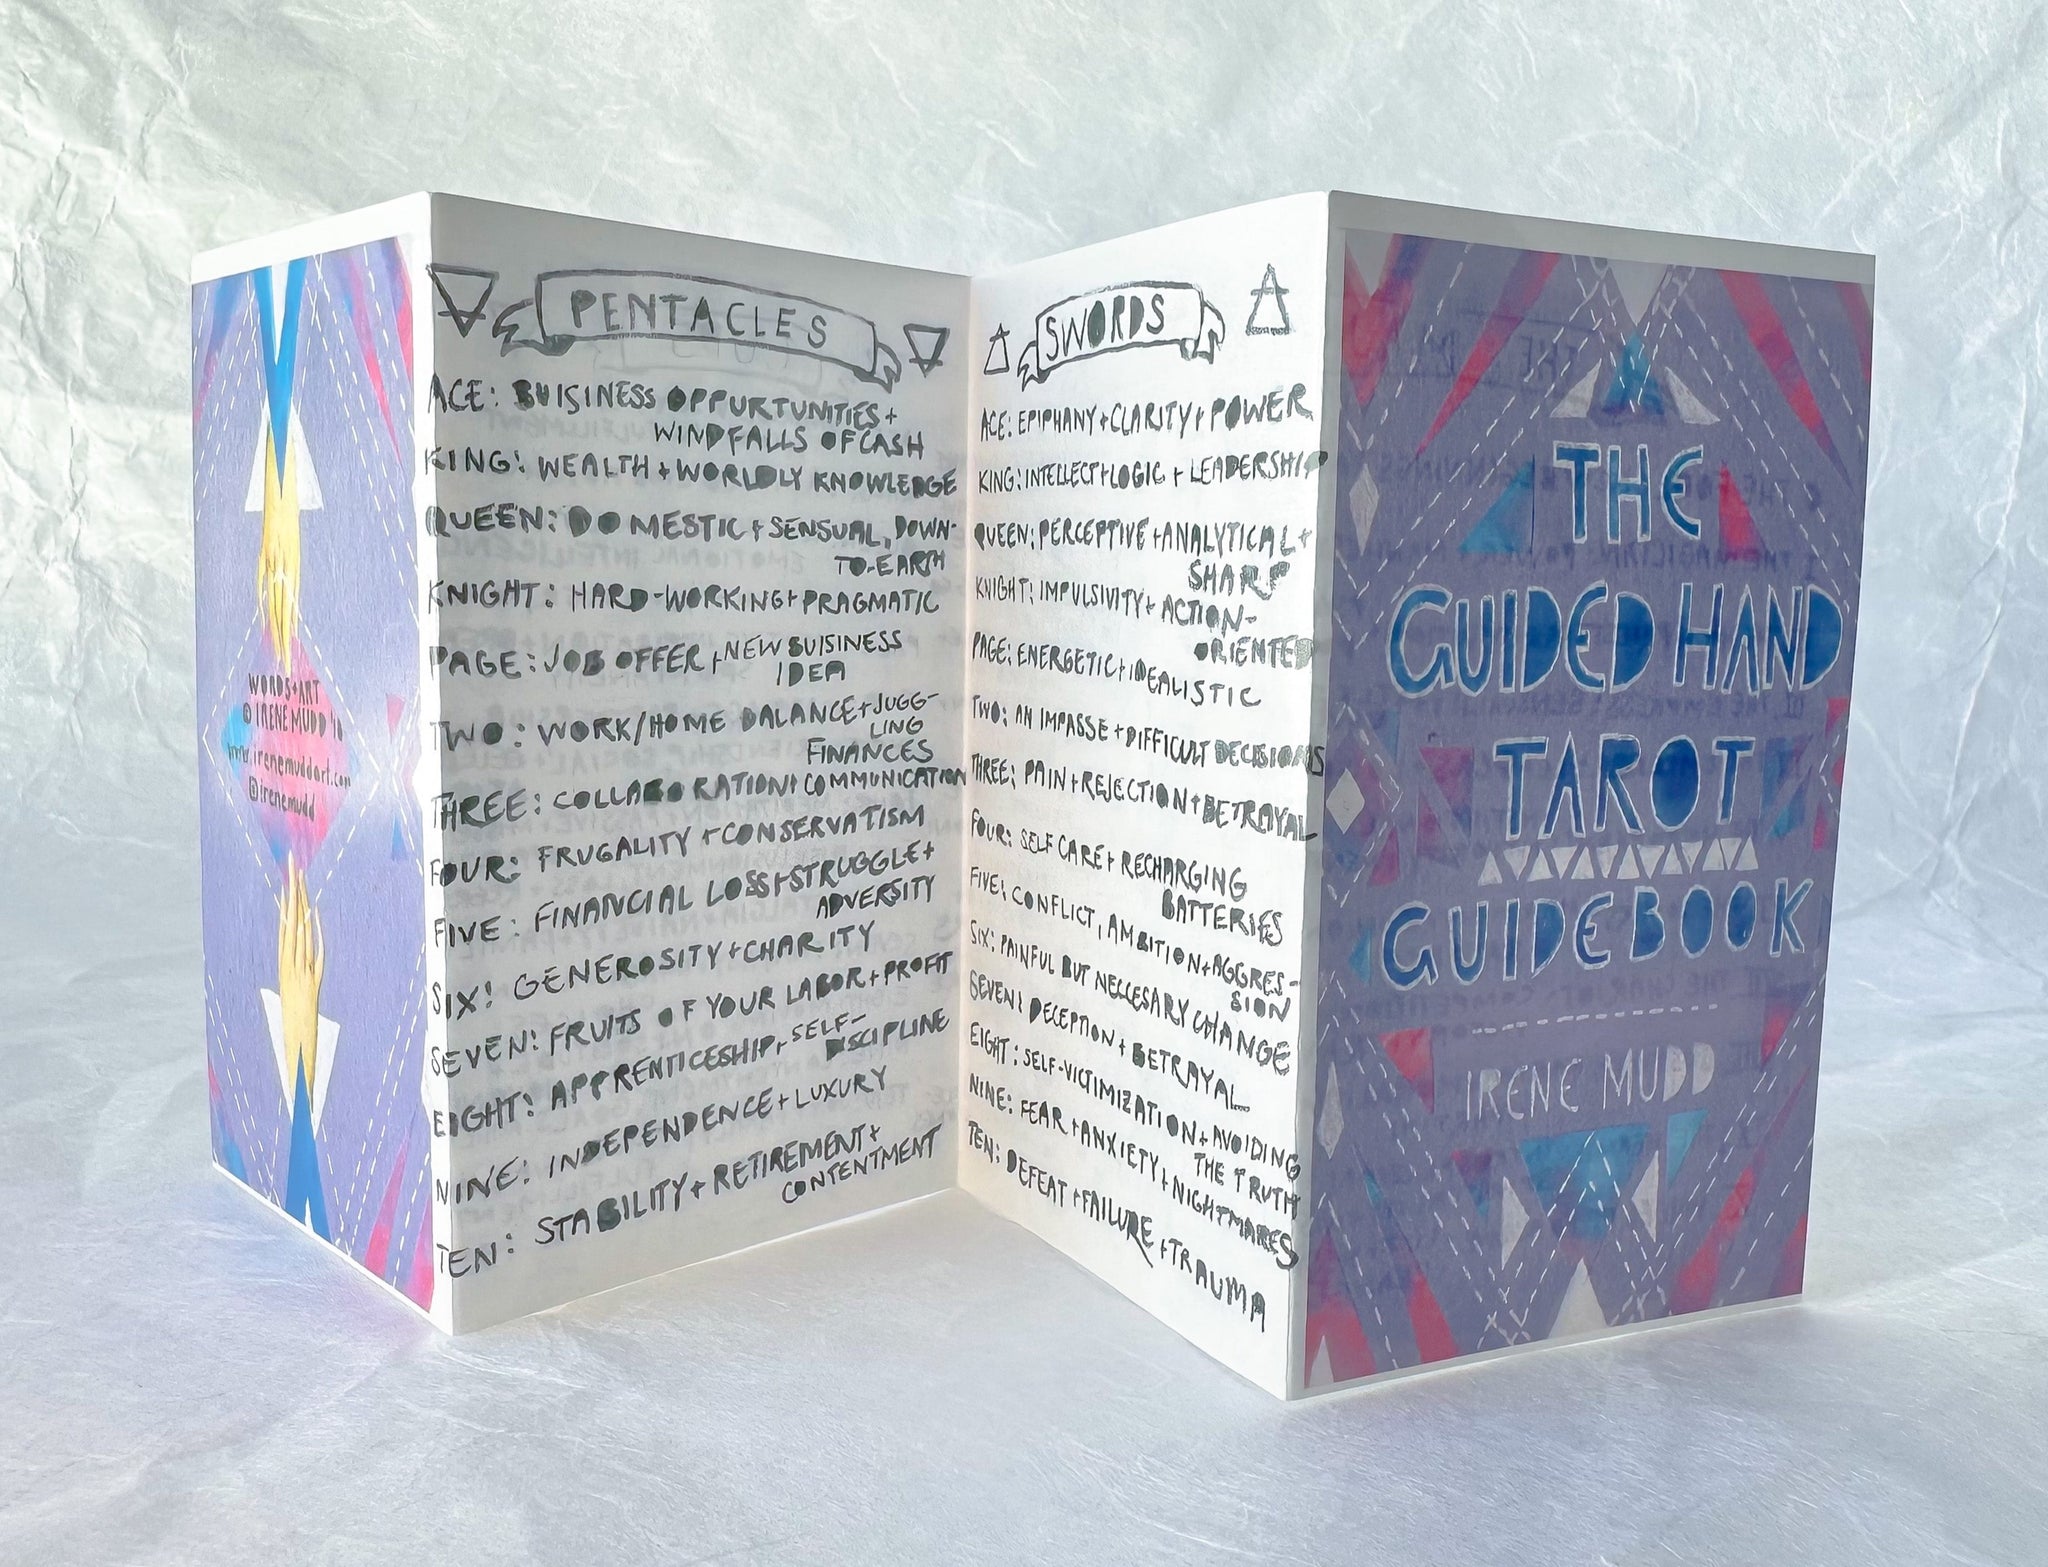 WORDS+ART
© IRENE MUDD '18
www.irenemuddart.com
@irenemudd
PENTACLES
ACE: BUISINESS OPPURTUNITIES +
WINDFALLS OF CASH
KING: WEALTH + WORLDLY KNOWLEDGE
QUEEN: DOMESTIC + SENSUAL, DOWN-
TO-EARTH
KNIGHT: HARD-WORKING + PRAGMATIC
PAGE: JOB OFFER + NEW BUISINESS
IDEA
TWO: WORK/HOME BALANCE + JUGG-
LING
FINANCES
THREE: COLLABORATION + COMMUNICATION
FOUR: FRUGALITY + CONSERVATISM
FIVE: FINANCIAL LOSS + STRUGGLE +
ADVERSITY
SIX: GENEROSITY + CHARITY
SEVEN: FRUITS OF YOUR LABOR + PROFIT
EIGHT: APPRENTICESHIP + SELF-
DISCIPLINE
NINE: INDEPENDENCE + LUXURY
TEN: STABILITY + RETIREMENT +
CONTENTMENT
SWORDS
ACE: EPIPHANY + CLARITY + POWER
KING: INTELLECT + LOGIC + LEADERSHIP
QUEEN: PERCEPTIVE + ANALYTICAL +
SHARP
KNIGHT: IMPULSIVITY + ACTION-
ORIENTED
PAGE: ENERGETIC + IDEALISTIC
TWO: AN IMPASSE + DIFFICULT DECISIONS
THREE: PAIN + REJECTION + BETRAYAL
FOUR: SELF CARE + RECHARGING
BATTERIES
FIVE: CONFLICT, AMBITION + AGGRES-
SION
SIX: PAINFUL BUT NECCESARY CHANGE
SEVEN: DECEPTION + BETRAYAL
EIGHT: SELF-VICTIMIZATION + AVOIDING
THE TRUTH
NINE: FEAR + ANXIETY + NIGHTMARES
TEN: DEFEAT + FAILURE + TRAUMA
THE
GUIDED HAND
TAROT
GUIDEBOOK
IRENE MUDD